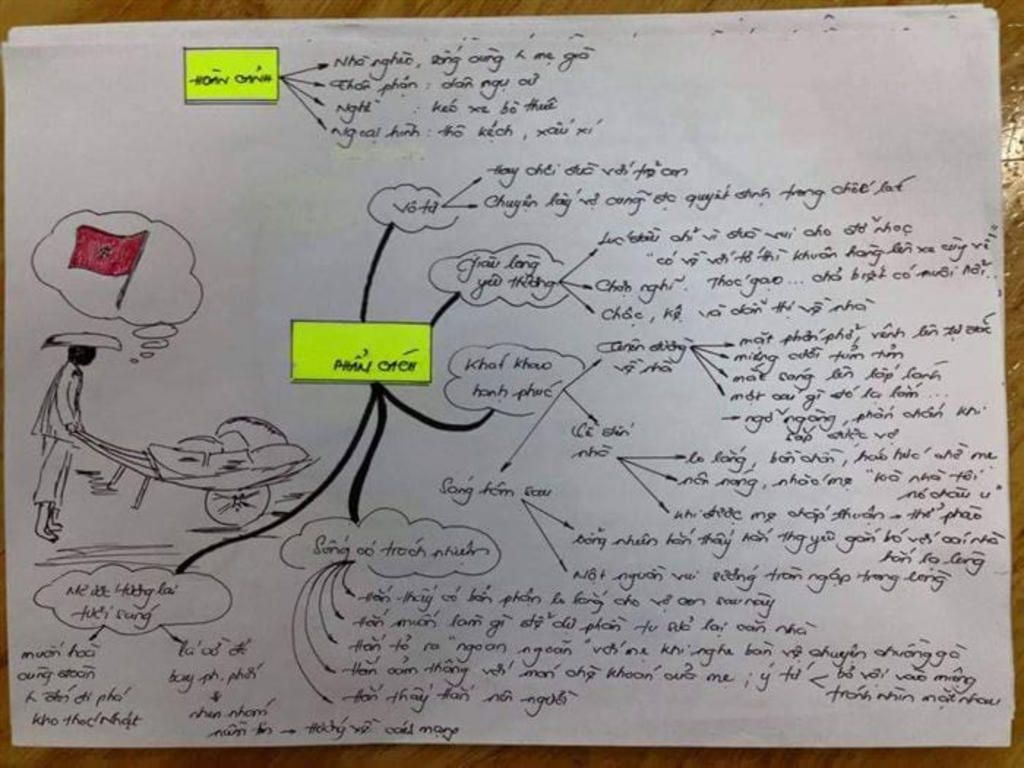 HOÀN CẢNH
Nhà nghèo, sống cùng mẹ già
Thân phận : dân ngụ cư
Nghề : kéo xe bò thuê
Ngoại hình : thô kệch, xấu xí
Vô tư
Hay chơi đùa với trẻ con
Chuyện lấy vợ cũng đc quyết định trong chốc lát
Giàu lòng
yêu thương
Lúc đầu chỉ vì đùa vui cho đỡ nhọc
"có về với tớ thì khuân hàng lên xe cùng về"
Chậc, kệ và dẫn thị về nhà
PHẨM CÁCH
Khát khao
hạnh phúc
Trên đường
về nhà
mặt phớn phở, vênh lên tự đắc
miệng cười tủm tỉm
mắt sáng lên lấp lánh
ngỡ ngàng, phấn chấn khi
Về đến
nhà
lo lắng, bồn chồn, háo hức chờ mẹ
nôn nóng, nhào mẹ "Kìa nhà tôi
nó chào u"
khi được mẹ chấp thuận → thở phào
Sáng hôm sau
bỗng nhiên hắn thấy hắn thg yêu gắn bó với cái nhà
hắn lạ lùng
Một nguồn vui sướng tràn ngập trong lòng
Sống có trách nhiệm
Hắn thấy có bổn phận lo lắng cho vợ con sau này
Hắn muốn làm gì để dự phần tu sửa lại căn nhà
Hắn tỏ ra "ngoan ngoãn" với mẹ khi nghe bàn về chuyện chuồng gà
Hắn cảm thông với món chè khoán của mẹ ; ý tứ bỏ vội vào miệng
tránh nhìn mặt nhau
Hắn thấy hắn nên người
Mơ ước tương lai
tươi sáng
muốn hoà
cùng đoàn
đến đi phá
kho thóc Nhật
lá cờ đỏ
bay ph. phới
nhen nhóm
niềm tin → hướng về cách mạng